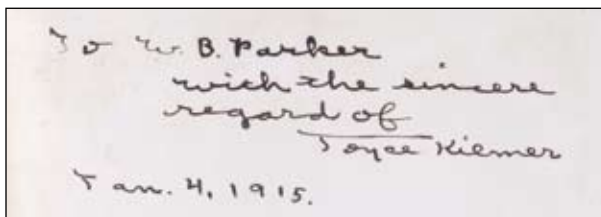 To W. B. Parker
with the sincere
regard of
Joyce Kilmer
Jan. 4, 1915.